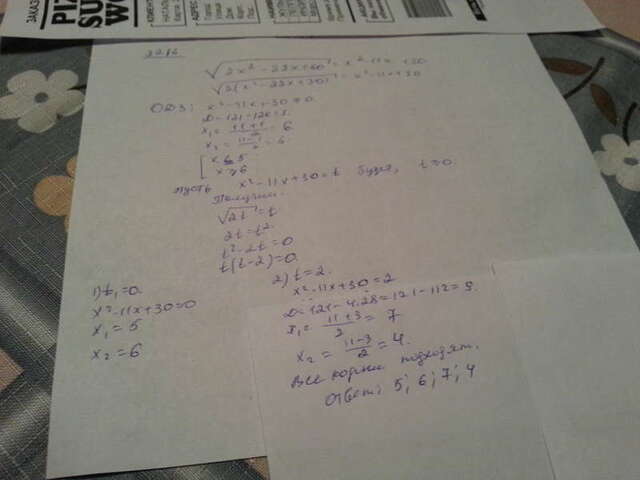 ЗАКАЗ
PIZ
SU
WO
√2x²-22x+60 = x²-11x+30
√2(x²-22x+30) = x²-11x+30
ОДЗ: x²-11x+30≥0
D=121-120=1
x₁=(11+1)/2=6
x₂=(11-1)/2=5
[x≤5
x≥6
Пусть x²-11x+30=t будет, t≥0.
Получим
√2t=t
2t=t²
t²-2t=0
t(t-2)=0
1) t₁=0
x²-11x+30=0
x₁=5
x₂=6
2) t=2.
x²-11x+30=2
D=121-4·28=121-112=9.
x₁=(11+3)/2=7
x₂=(11-3)/2=4.
Все корни подходят.
Ответ: 5; 6; 7; 4